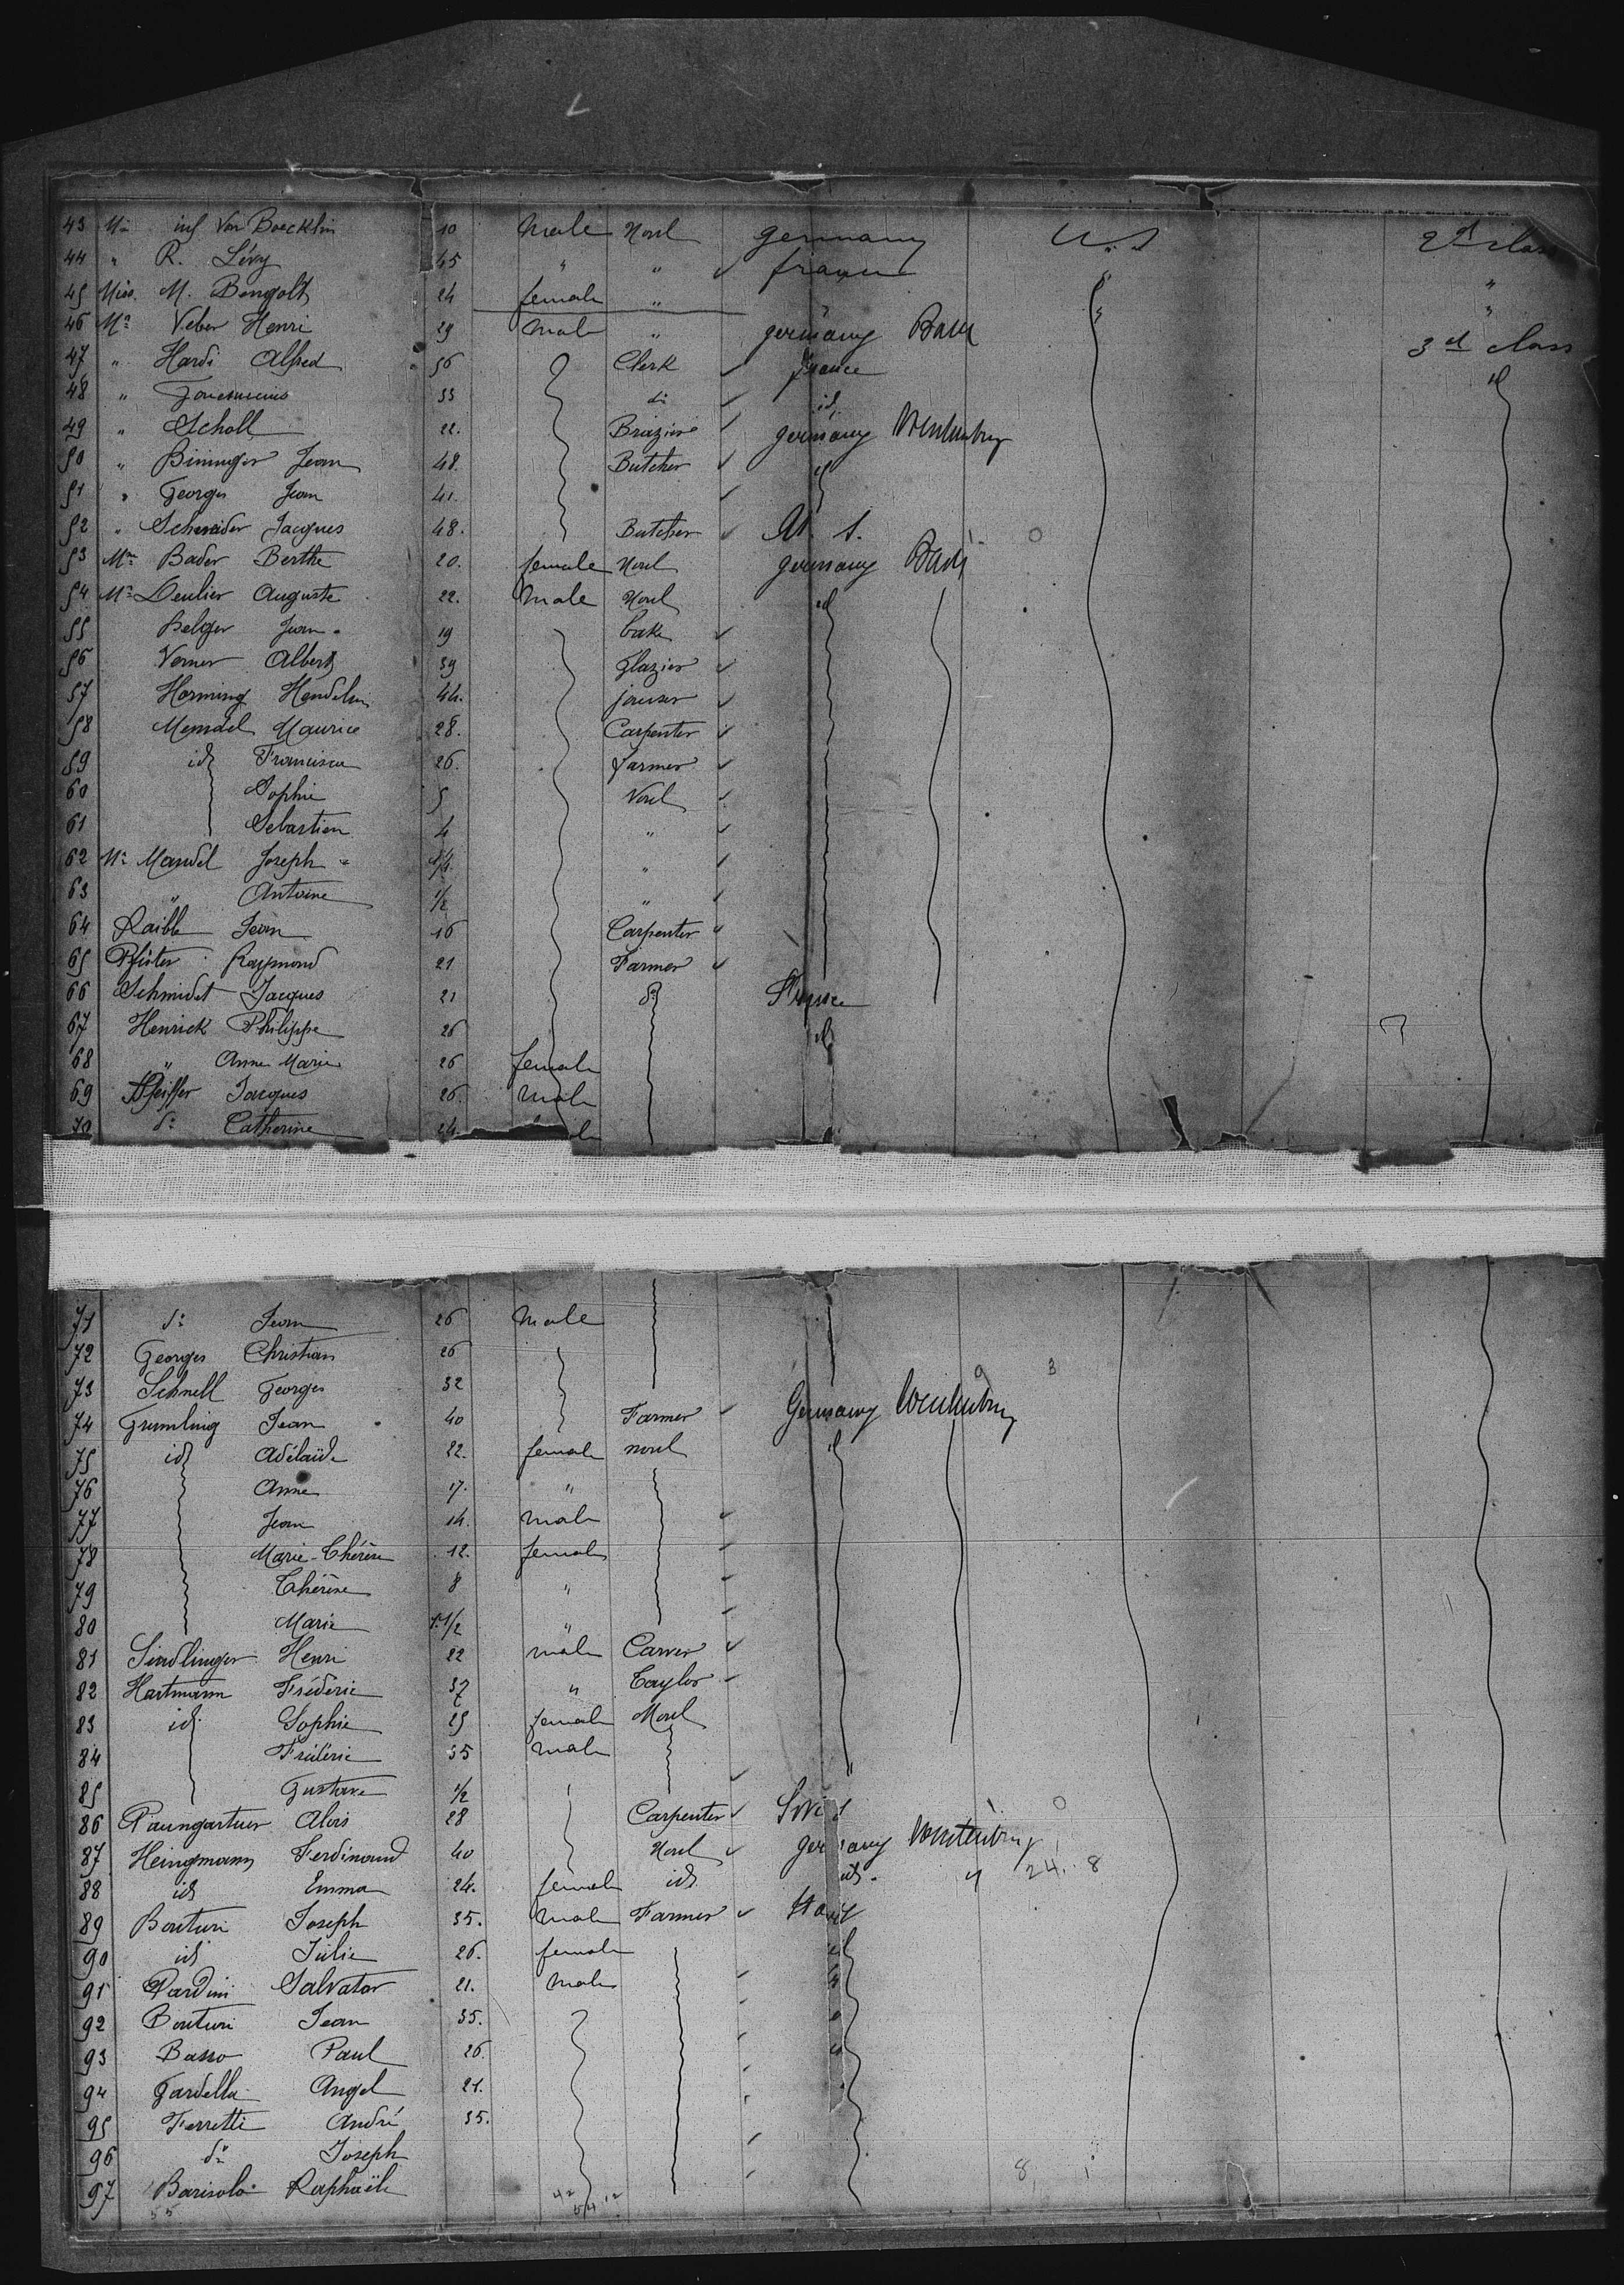 43 Mr inf Von Boecklin 10 Male None Germany U.S 2d class
44 " R. Lévy 45 " " france " "
45 Miss M. Bengolt 24 female " "
46 Mr Veber Henri 29 Male " germany Bade 3d class
47 " Hardi Alfred 56 Clerk france id
48 " 33 do id
49 " Scholl 22. Brazier germany Wurtemburg
50 " Bininger Jean 48. Butcher id
51 " Georges Jean 41.
52 " Schneider Jacques 48. Butcher U. S.
53 Bader Berthe 20. female None germany Bade
54 Mr Deulier Auguste 22. Male None id
55 Belger Jean 19 bake
56 Verner Albert 39 Glazier
57 Horming 44.
58 Mendel Maurice 28. Carpenter
59 id Francisca 26. farmer
60 Sophie 5 None
61 Sebastien 4 "
62 Mr Mandel Joseph "
63 " Antoine 1/2 "
64 Raible Jean 16 Carpenter
65 Pfister Raymond 21 Farmer
66 Schmidt Jacques 21 do
67 Henrick Philippe 26 id
68 " Anne Marie 26 female
69 Pfeiffer Jacques 26. Male
70 do Catherine 24.
71 do Jean 26 Male
72 Georges Christian 26 3
73 Schnell Georges 32
74 Grumling Jean 40 Farmer Germany Wurtemburg
75 id Adélaïde 22. female none id
76 Anne 17. "
77 Jean 14. male
78 Marie-Thérèse 12. female
79 Thérèse 8 "
80 Marie 1 1/2 "
81 Sindlinger Henri 22 male Carver
82 Hartmann Frédéric 37 " Taylor
83 id. Sophie 25 female None
84 Frédéric 35 male
85 Gustave 1/2 "
86 Paumgartner Alois 28 Carpenter
87 Heingmann Ferdinand 40 None germany Wurtemburg
88 id Emma 24. female id id. " 24. 8
89 Bonturi Joseph 35. Male Farmer Italy
90 id Julie 26. female id
91 Pardini Salvator 21. Male
92 Bonturi Jean 35.
93 Basso Paul 26.
94 Gardella Angel 21.
95 Ferretti André 35.
96 do Joseph
97 Barisolo Raphaël 8